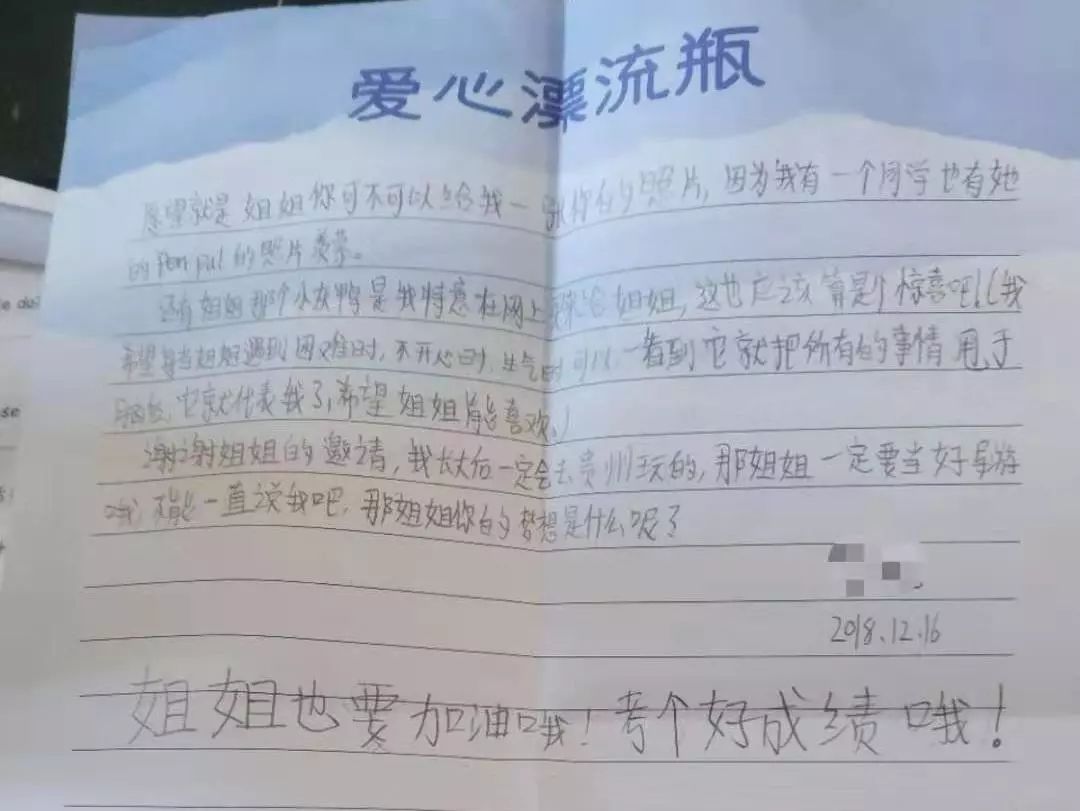 爱心漂流瓶
愿望就是姐姐你可不可以给我一张你的照片，因为我有一个同学也有她
的Pen pal的照片羡慕。
还有姐姐那个小灰鸭是我特意在网上买来给姐姐，这也应该算是个惊喜吧!(我
希望每当姐姐遇到困难时，不开心时，生气时可以一看到它就把所有的事情甩于
脑后，它就代表我了，希望姐姐能喜欢。)
谢谢姐姐的邀请，我长大后一定会去贵州玩的，那姐姐一定要当好导游
哦，不能一直说我吧，那姐姐你的梦想是什么呢？
2018.12.16
姐姐也要加油哦！考个好成绩哦！
se